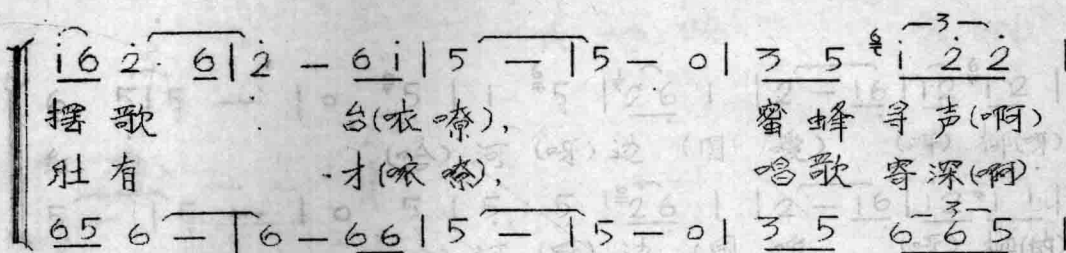 i 6 2̇· 6 | 2̇ – 6 i | 5 – | 5 – 0 | 3 5 6 i 2̇ 2̇ |
摆歌 台(哝嘹), 蜜蜂寻声(啊)
肚有 才(哝嘹), 唱歌寄深(啊)
6 5 6 – | 6 – 6 6 | 5 – | 5 – 0 | 3 5 6 6 5 |